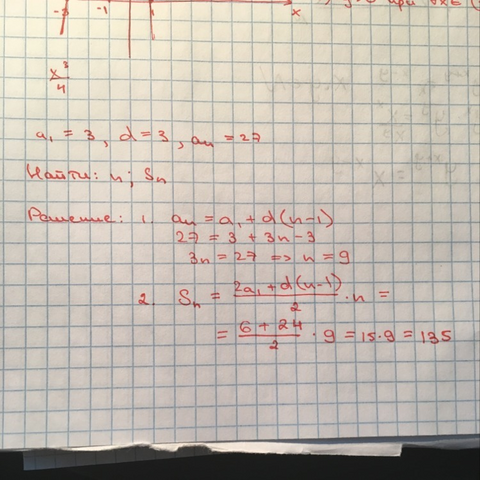 -1 1 x
x³/4
a₁ = 3, d = 3, aₙ = 27
Найти: n; Sₙ
Решение: 1. aₙ = a₁ + d(n-1)
27 = 3 + 3n - 3
3n = 27 => n = 9
2. Sₙ = (2a₁ + d(n-1))/2 · n =
= (6 + 24)/2 · 9 = 15·9 = 135